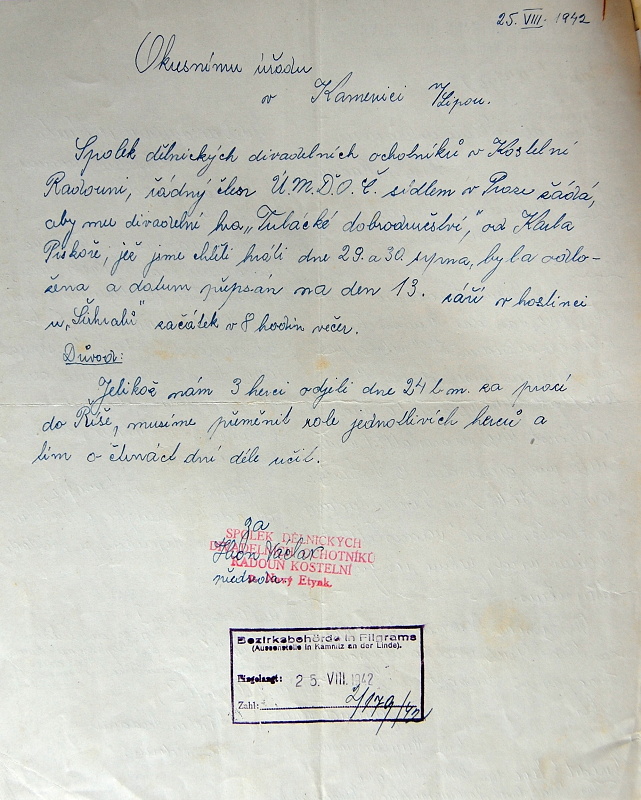 25. VIII. 1942
Okresnímu úřadu
v Kamenici n/Lipou.
Spolek dělnických divadelních ochotníků v Kostelní
Radouni, řádný člen Ú.M.D.O.Č. sídlem v Praze žádá,
aby mu divadelní hra „Tulácké dobrodružství," od Karla
Piskoře, jež jsme chtěli hráti dne 29. a 30. srpna, byla odlo-
žena a datum přepsán na den 13. září v hostinci
u „Šihralů" začátek v 8 hodin večer.
Důvod:
Jelikož nám 3 herci odjeli dne 24 t.m. za prací
do Říše, musíme přeměnit role jednotlivích herců a
tím o čtrnáct dní déle učit.
Za
SPOLEK DĚLNICKÝCH
DIVADELNÍCH OCHOTNÍKŮ
Václav
RADOUN KOSTELNÍ
předseda.
p. Nový Etynk.
Bezirksbehörde in Pilgrams
(Aussenstelle in Kamnitz an der Linde).
Eingelangt: 25. VIII. 1942
Zahl: 2/179/42